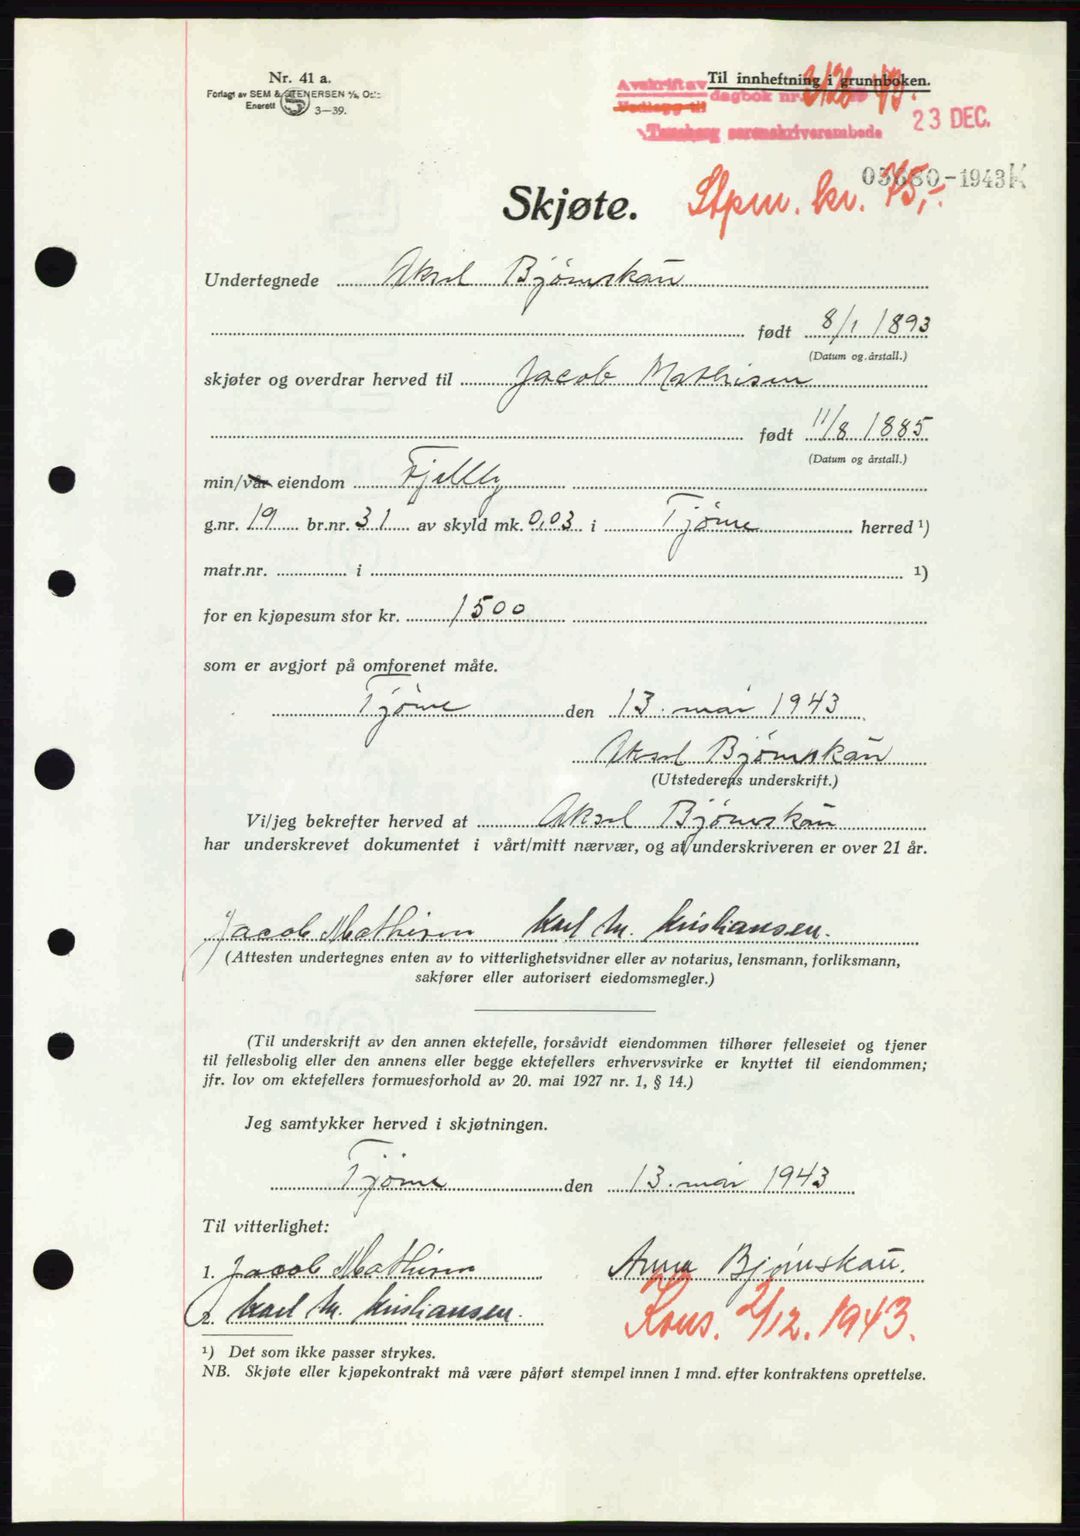 Nr. 41 a.
Forlagt av SEM & STENERSEN A/S, Oslo
Enerett 3—39.
Til innheftning i grunnboken.
Avskrift av
Vedlegg til
dagbok nr.
Tønsberg sorenskriverembede
23 DEC.
03680-1943 K
Stpm. kr. 75,-
Skjøte.
Undertegnede Aksel Bjørnskau
født 8/1 1893
(Datum og årstall.)
skjøter og overdrar herved til Jacob Mathisen
født 11/8 1885
(Datum og årstall.)
min/vår eiendom Fjellly
g.nr. 19 br.nr. 31 av skyld mk. 0,03 i Tjøme herred ¹)
matr.nr. i ¹)
for en kjøpesum stor kr. 1500
som er avgjort på omforenet måte.
Tjøme den 13. mai 1943
Aksel Bjørnskau
(Utstederens underskrift.)
Vi/jeg bekrefter herved at Aksel Bjørnskau
har underskrevet dokumentet i vårt/mitt nærvær, og at underskriveren er over 21 år.
Jacob Mathisen Karl M. Kristiansen.
(Attesten undertegnes enten av to vitterlighetsvidner eller av notarius, lensmann, forliksmann,
sakfører eller autorisert eiedomsmegler.)
(Til underskrift av den annen ektefelle, forsåvidt eiendommen tilhører felleseiet og tjener
til fellesbolig eller den annens eller begge ektefellers erhvervsvirke er knyttet til eiendommen;
jfr. lov om ektefellers formuesforhold av 20. mai 1927 nr. 1, § 14.)
Jeg samtykker herved i skjøtningen.
Tjøme den 13. mai 1943
Til vitterlighet:
1. Jacob Mathisen Anna Bjørnskau.
2. Karl M. Kristiansen.
Kons. 2/12. 1943.
¹) Det som ikke passer strykes.
NB. Skjøte eller kjøpekontrakt må være påført stempel innen 1 mnd. efter kontraktens oprettelse.